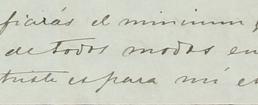 ficarás el minimum
de todos modos en
triste es para mí